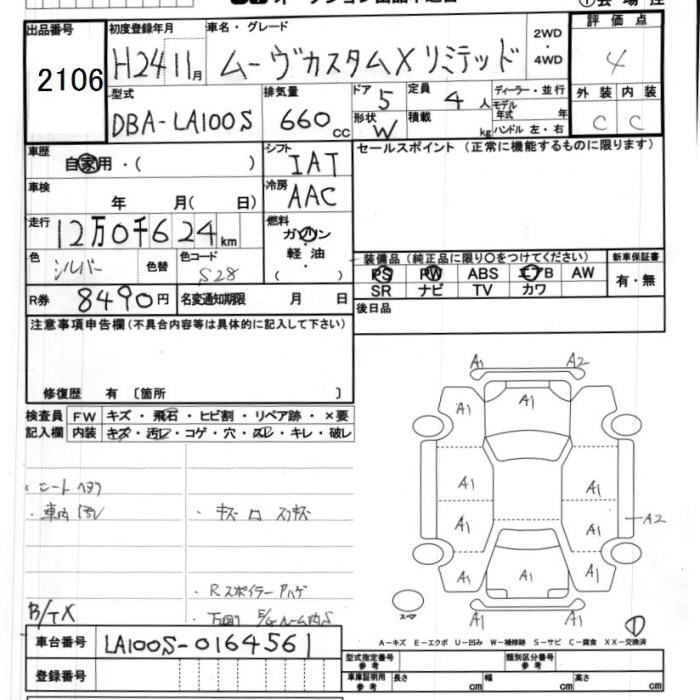 出品番号 2106
初度登録年月 H24 11月
車名・グレード ムーヴカスタムX リミテッド
2WD・4WD
評価点 4
型式 DBA-LA100S
排気量 660cc
ドア 5
定員 4人
ディーラー・並行
形状 W
積載 kg
モデル年式 年
ハンドル 左・右
外装 C
内装 C
車歴 自家用・( )
シフト IAT
車検 年 月( 日)
冷房 AAC
走行 12万0千624km
燃料 ガソリン・軽油 ( )
色 シルバー
色替
色コード S28
R券 8490円
名変通知期限 月 日
セールスポイント (正常に機能するものに限ります)
装備品 (純正品に限り○をつけてください)
新車保証書
PS PW ABS エアB AW
有・無
SR ナビ TV カワ
後日品
注意事項申告欄 (不具合内容等は具体的に記入して下さい)
修復歴 有 〔箇所 〕
検査員記入欄
FW キズ・飛石・ヒビ割・リペア跡・×要
内装 キズ・汚レ・コゲ・穴・スレ・キレ・破レ
・車内汚レ
・Rスポイラー ハゲ
B/TX
A1 A2
A1 A1 A1
A1 A1
A1 A1 A2
A1 A1 A1
A1 A1
スペア
①
A-キズ E-エクボ U-凹み W-補修跡 S-サビ C-腐食 XX-交換済
車台番号 LA100S-0164561
登録番号
型式指定番号 参考
類別区分番号 参考
車庫証明用 参考 長さ cm 幅 cm 高さ cm